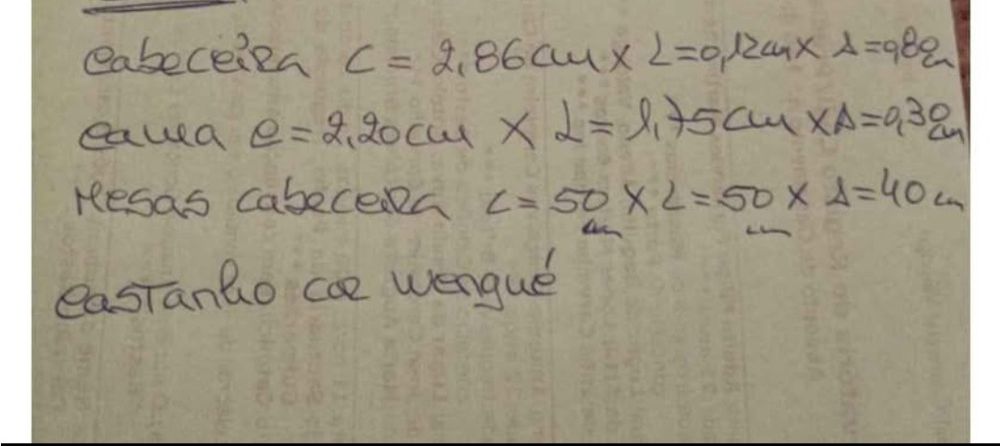 Cabeceira C = 2,86cm x L=0,12cm x A=0,80cm
Cama C=2,20cm x L=1,75cm x A=0,30cm
Mesas cabeceira C=50cm x L=50cm x A=40cm
Castanho cor wengué